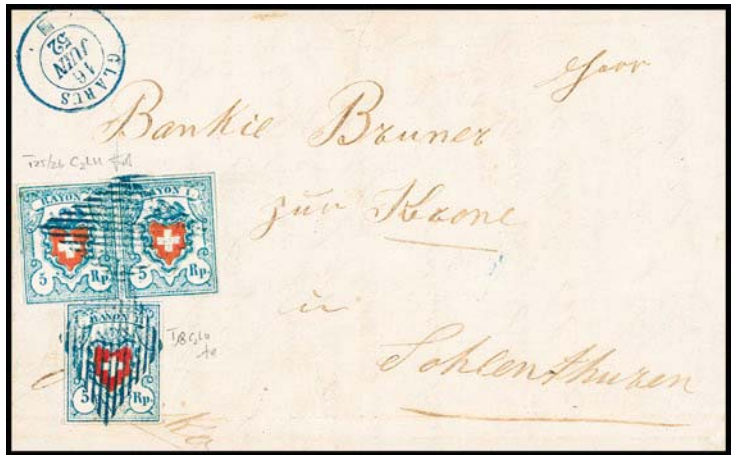 GLARUS
16
JUIN
52
Herr
Bankie Bruner
zur Krone
in
Sohlenthuren
T25/26 C2 LU
RAYON I.
RAYON I.
5 Rp.
5 Rp.
T18 C2 LU
RAYON I.
5 Rp.